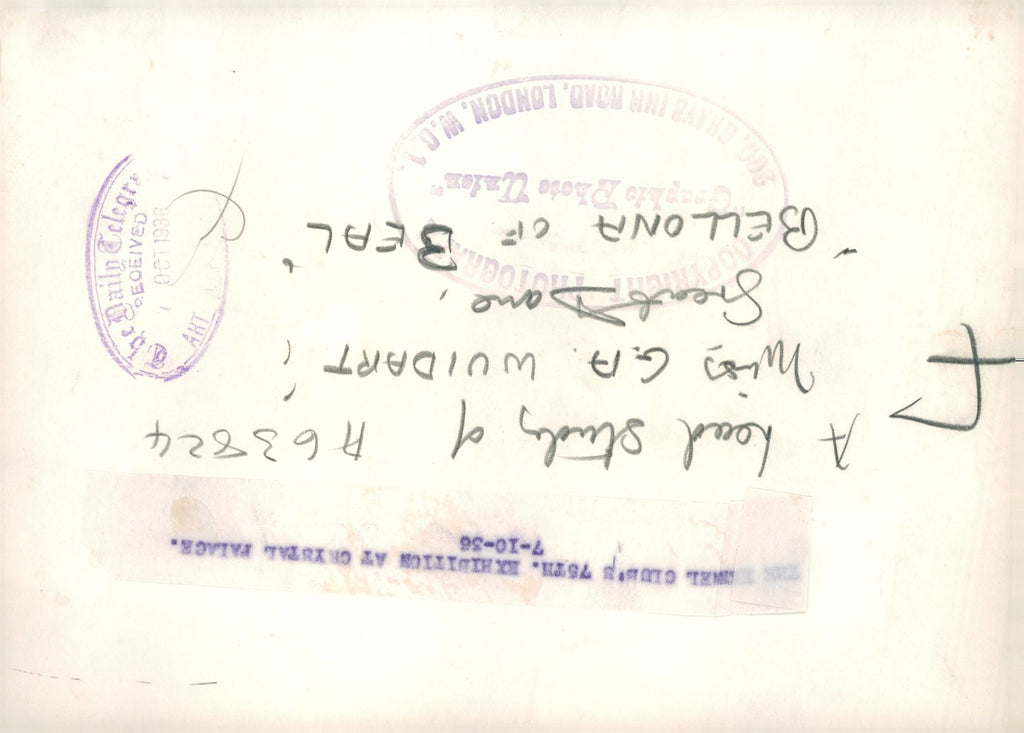 THE KENNEL CLUB'S 75TH. EXHIBITION AT CRYSTAL PALACE.
7-10-36
A head study of A63824
Miss G.A. WUIDART'S
Great Dane,
"BELLONA OF BEAL"
COPYRIGHT PHOTOGRAPH
"Graphic Photo Union"
200, GRAYS INN ROAD, LONDON, W.C.1.
The Daily Telegraph
RECEIVED
OCT 1936
ART